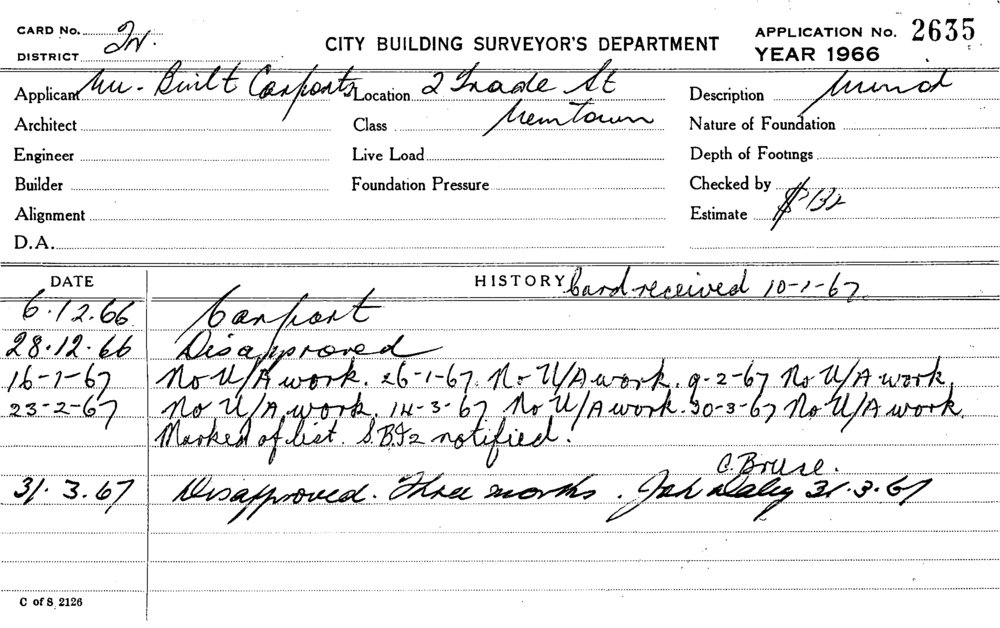 CARD No. 2N.
DISTRICT
CITY BUILDING SURVEYOR'S DEPARTMENT
APPLICATION No. 2635
YEAR 1966
Applicant Nu-Built Carports Location 2 Trade St Description
Architect Class Newtown Nature of Foundation
Engineer Live Load Depth of Footings
Builder Foundation Pressure Checked by
Alignment Estimate $132
D.A.
DATE HISTORY Card received 10-1-67
6.12.66 Carport
28.12.66 Disapproved
16-1-67 No U/A work. 26-1-67. No U/A work. 9-2-67 No U/A work.
23-2-67 No U/A work. 14-3-67 No U/A work. 30-3-67 No U/A work.
Marked of list. S.B.I2 notified.
C. Bruse.
31.3.67 Disapproved. Three months. Daley 31.3.67
C of S 2126